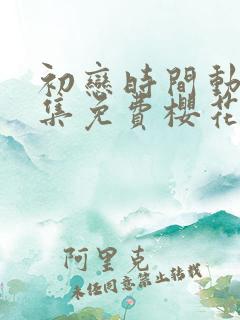 初戀時間動
集免費櫻花
阿里克
未经同意禁止转载